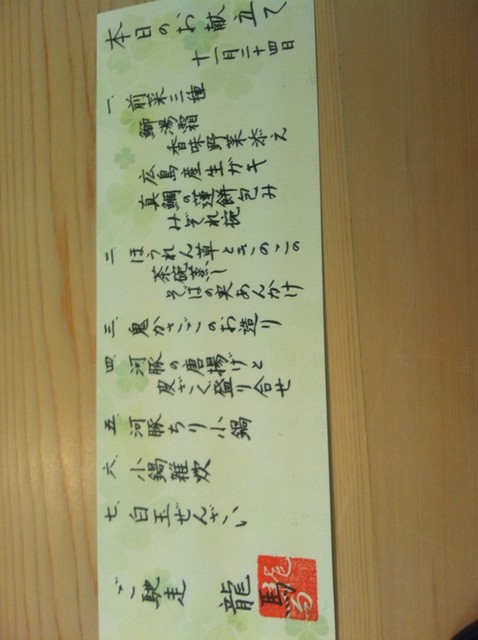 本日のお献立て
十一月二十四日
一、前菜三種
鰤湯霜
香味野菜添え
広島産生ガキ
真鯛の蓮餅包み
みぞれ椀
二、ほうれん草ときのこの
茶碗蒸し
そばの実あんかけ
三、鬼かさごのお造り
四、河豚の唐揚げと
皮ざく盛り合せ
五、河豚ちり小鍋
六、小鍋雑炊
七、白玉ぜんざい
ご馳走
龍馬